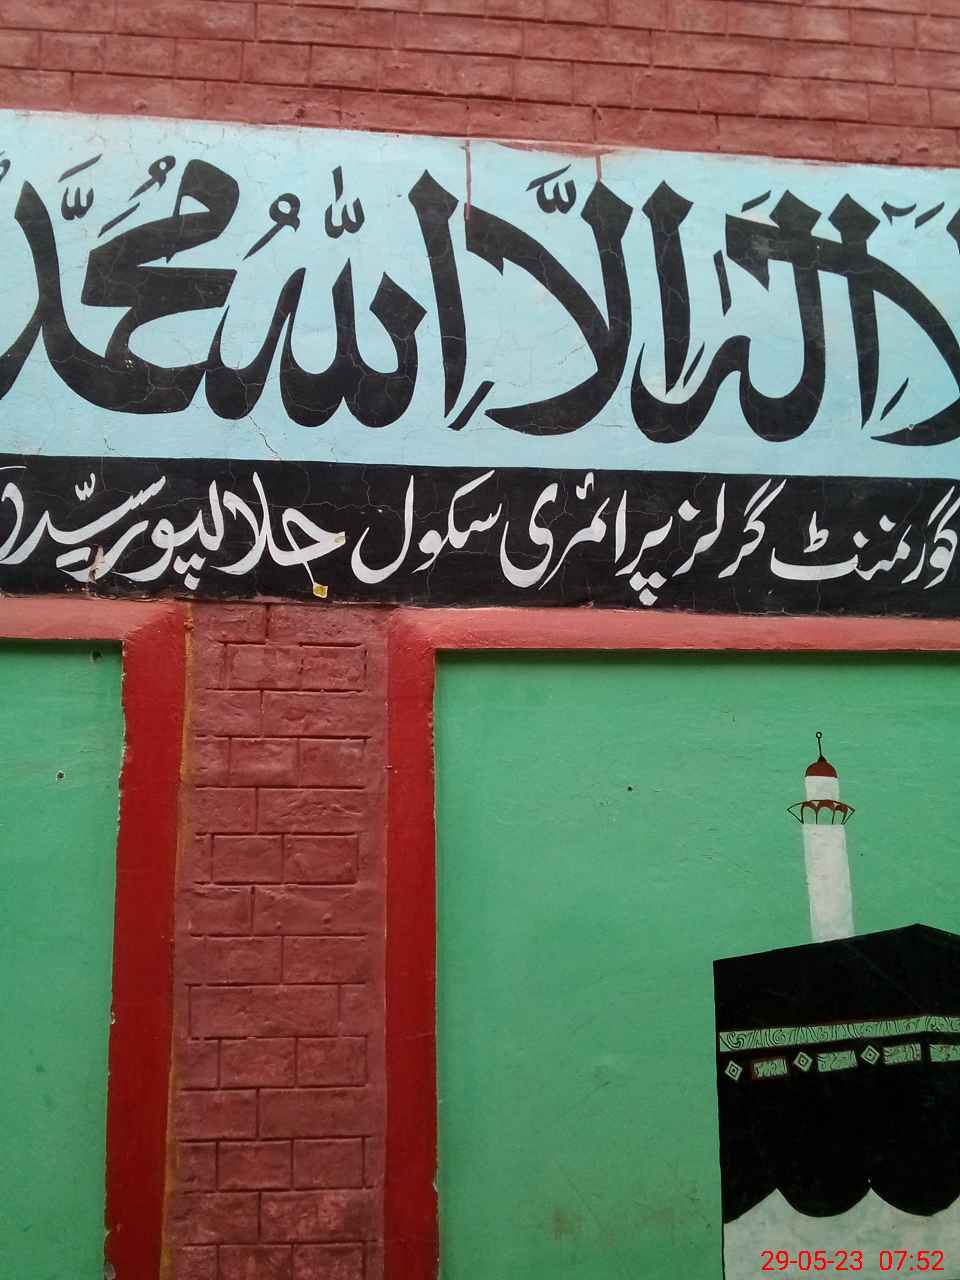 لا الہ الا اللہ محمد
گورنمنٹ گرلز پرائمری سکول جلالپور سیّد
29-05-23 07:52